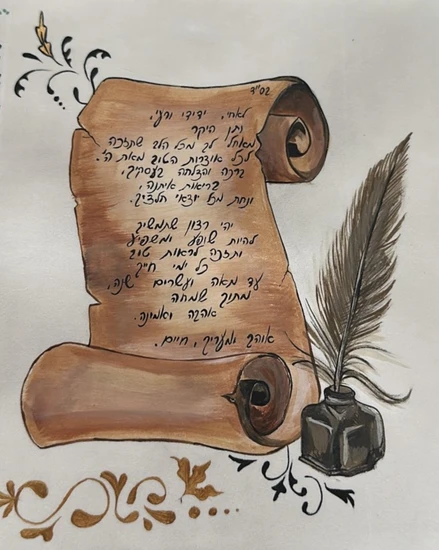 בס"ד
לאחי, ידידי ורעי,
נתן היקר
מאחל לך מכל הלב שתזכה
לכל אוצרות הטוב מאת ה'.
ברכה והצלחה בעסקיך,
בריאות איתנה,
ונחת מכל יוצאי חלציך.
יהי רצון שתמשיך
להיות שופע ומשפיע
ותזכה לראות טוב
כל ימי חייך
עד מאה ועשרים שנה,
מתוך שמחה
אהבה ואמונה.
אוהב ומעריך, חיים.